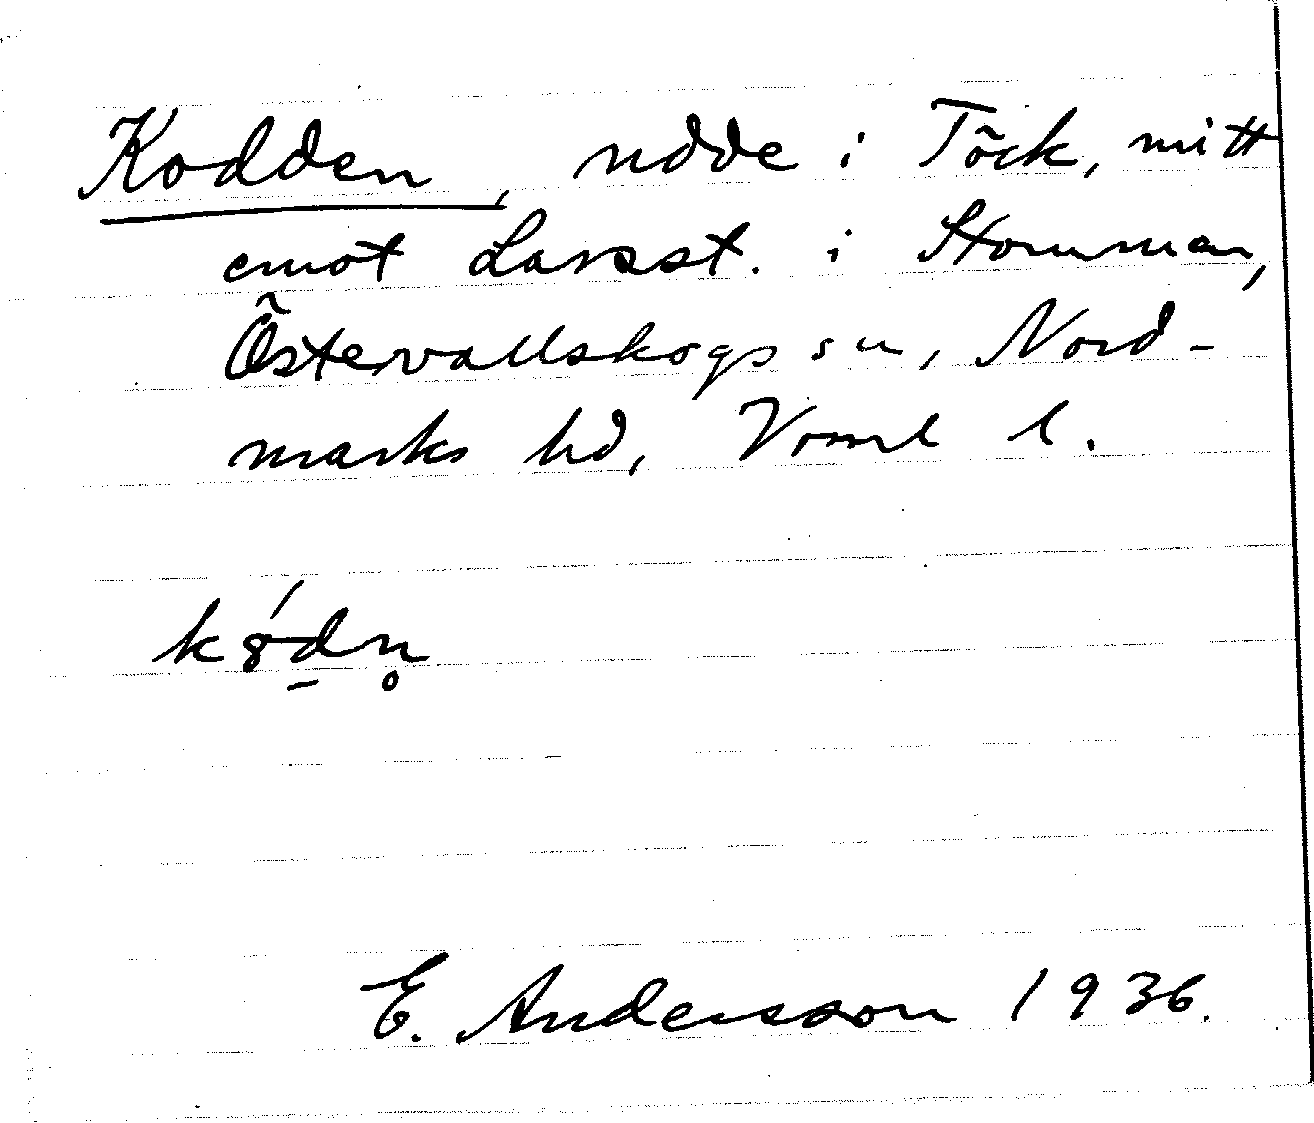 Kodden, udde i Töck, mitt
emot Larsst. i Stommen,
Östervallskogs sn, Nord-
marks hd, Vrml l.
kȣ́d̠n̥
E. Andersson 1936.